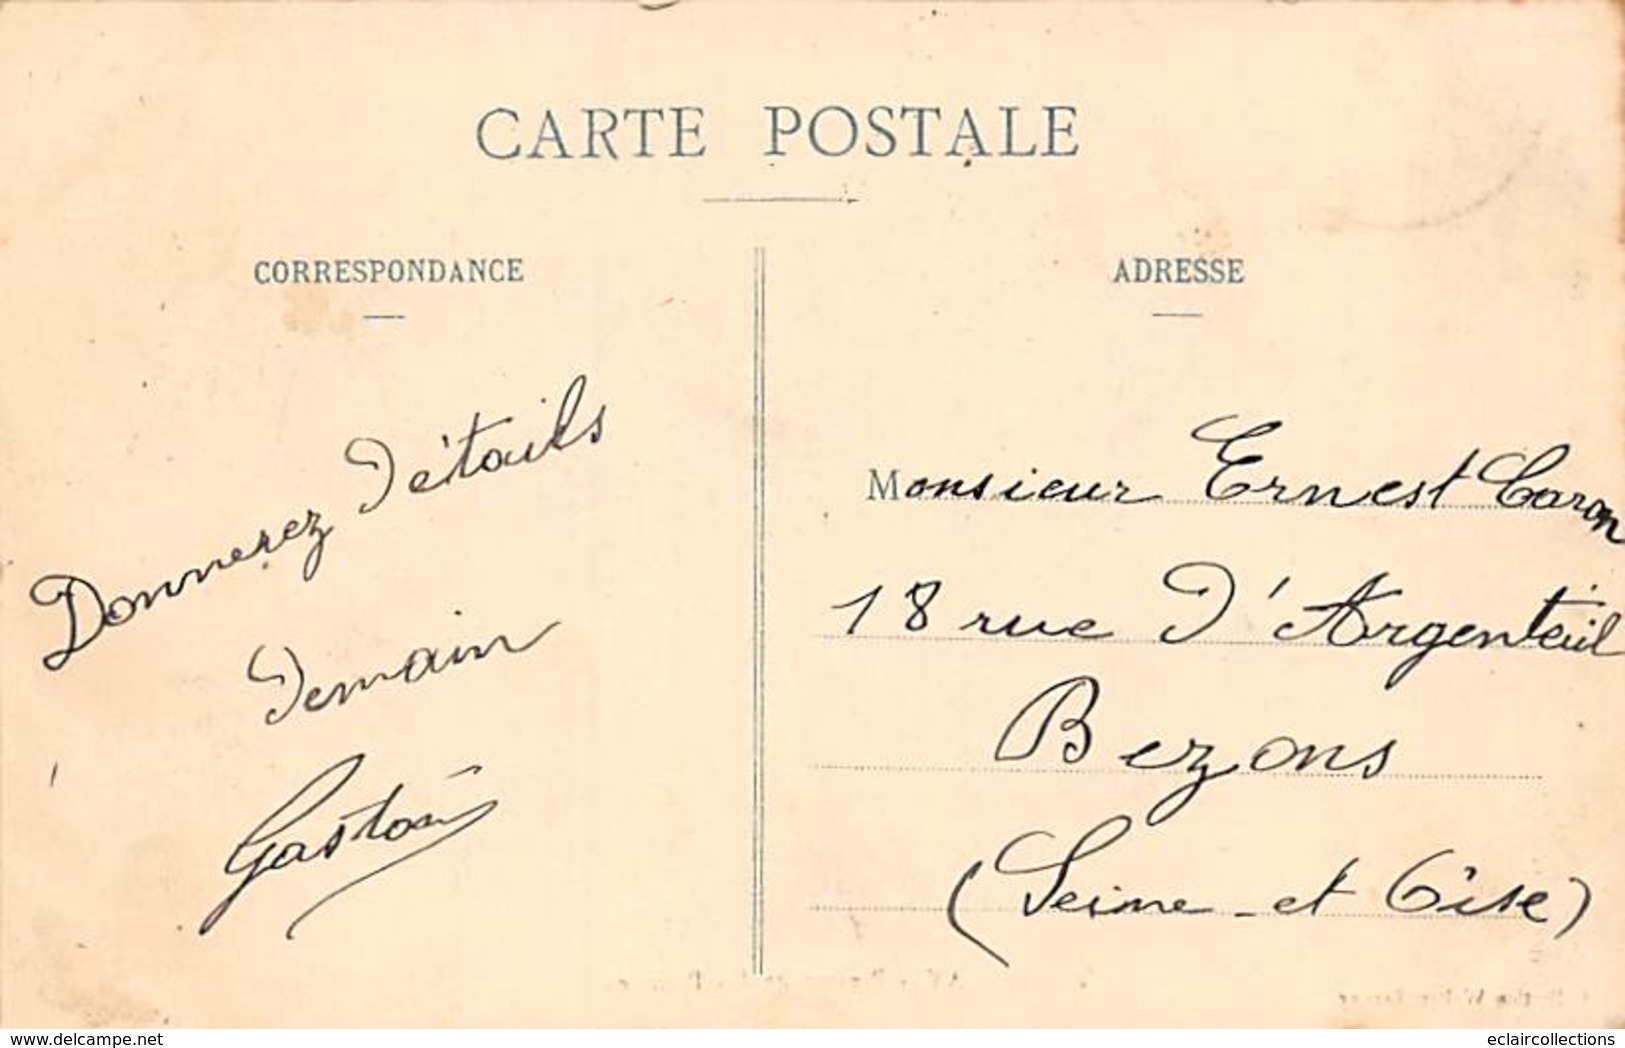 CARTE POSTALE
CORRESPONDANCE
ADRESSE
Donnerez Détails
Demain
Gaston
Monsieur Ernest Caron
18 rue D'Argenteuil
Bezons
(Seine-et Oise)
www.delcampe.net
eclaircollections